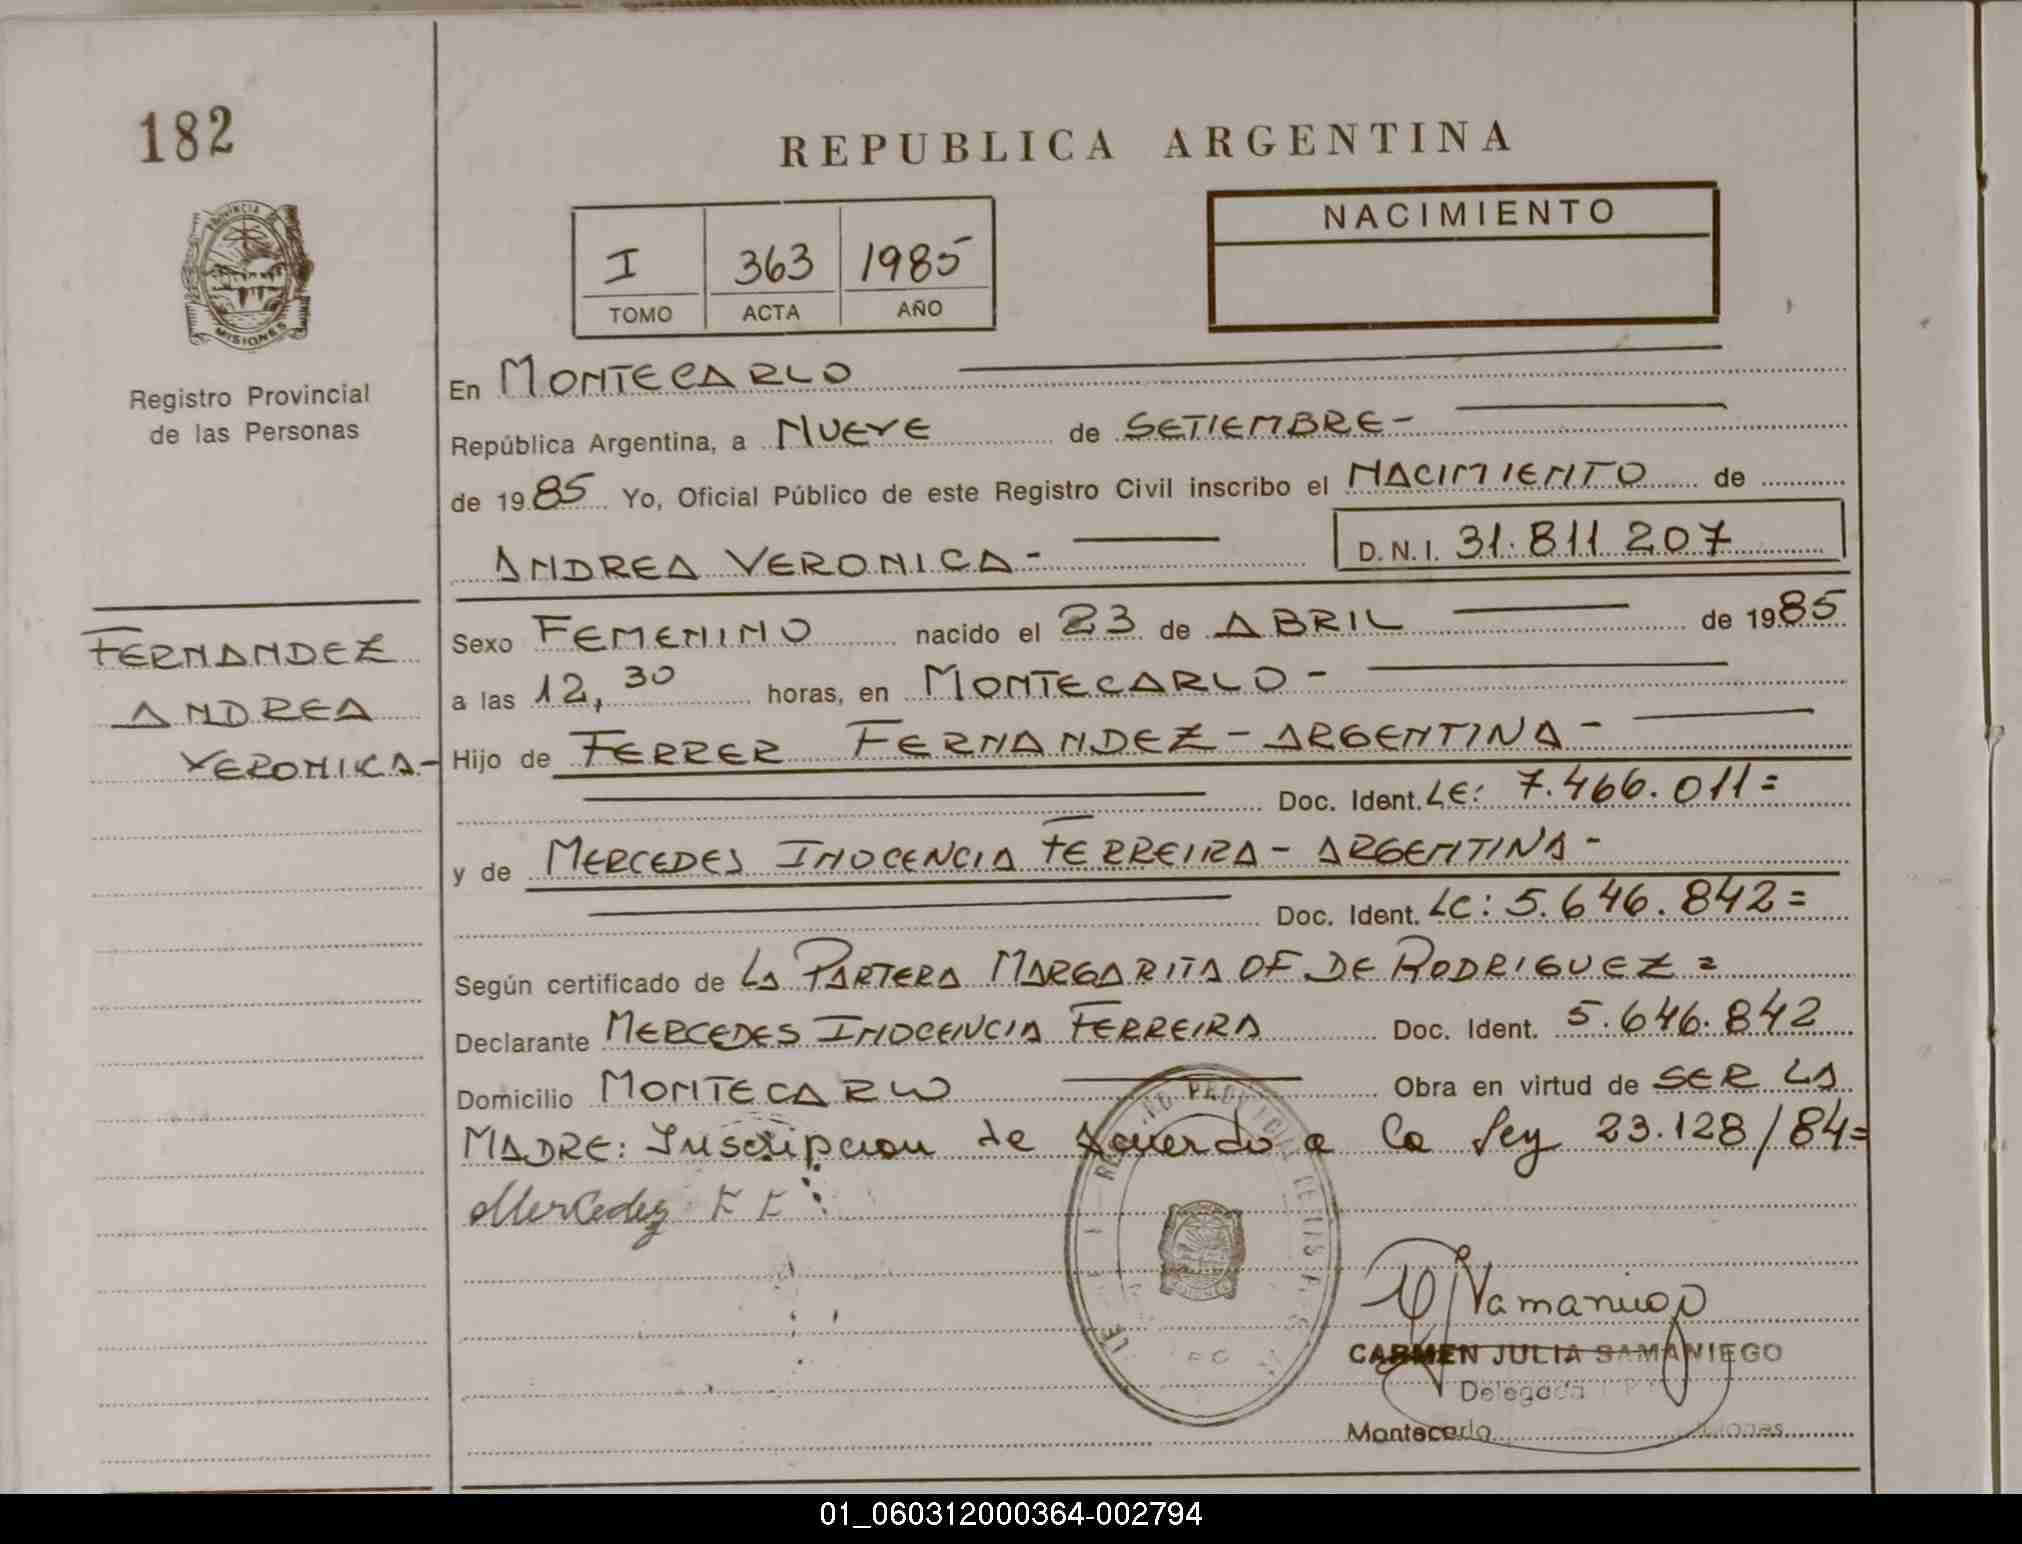 182
REPUBLICA ARGENTINA
PROVINCIA DE
MISIONES
Registro Provincial
de las Personas
I 363 1985
TOMO ACTA AÑO
NACIMIENTO
En MONTECARLO
República Argentina, a NUEVE de SETIEMBRE-
de 1985 Yo, Oficial Público de este Registro Civil inscribo el NACIMIENTO de
ANDREA VERONICA- D.N.I. 31.811.207
FERNANDEZ
ANDREA
VERONICA-
Sexo FEMENINO nacido el 23 de ABRIL de 1985
a las 12,30 horas, en MONTECARLO-
Hijo de FERRER FERNANDEZ-ARGENTINA-
Doc. Ident. LE: 7.466.011=
y de MERCEDES INOCENCIA FERREIRA-ARGENTINA-
Doc. Ident. LC: 5.646.842=
Según certificado de LA PARTERA MARGARITA OF DE RODRIGUEZ=
Declarante MERCEDES INOCENCIA FERREIRA Doc. Ident. 5.646.842
Domicilio MONTECARLO Obra en virtud de SER LA
MADRE: Inscripcion de Acuerdo a la ley 23.128/84=
Mercedes
Samaniego
CARMEN JULIA SAMANIEGO
Delegada
Montecarlo Misiones
01_060312000364-002794